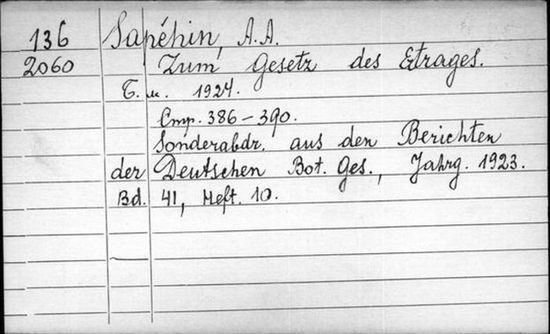 136 Sapéhin, A.A.
2060 Zum Gesetz des Etrages.
Б.м. 1924.
Стр. 386-390.
Sonderabdr. aus den Berichten
der Deutschen Bot. Ges., Jahrg. 1923.
Bd. 41, Heft. 10.